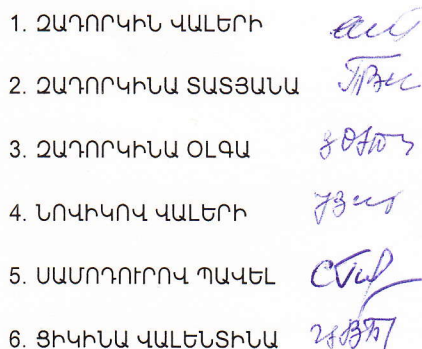 1. ԶԱԴՈՐԿԻՆ ՎԱԼԵՐԻ
2. ԶԱԴՈՐԿԻՆԱ ՏԱՏՅԱՆԱ
3. ԶԱԴՈՐԿԻՆԱ ՕԼԳԱ
4. ՆՈՎԻԿՈՎ ՎԱԼԵՐԻ
5. ՍԱՄՈԴՈՒՐՈՎ ՊԱՎԵԼ
6. ՑԻԿԻՆԱ ՎԱԼԵՆՏԻՆԱ